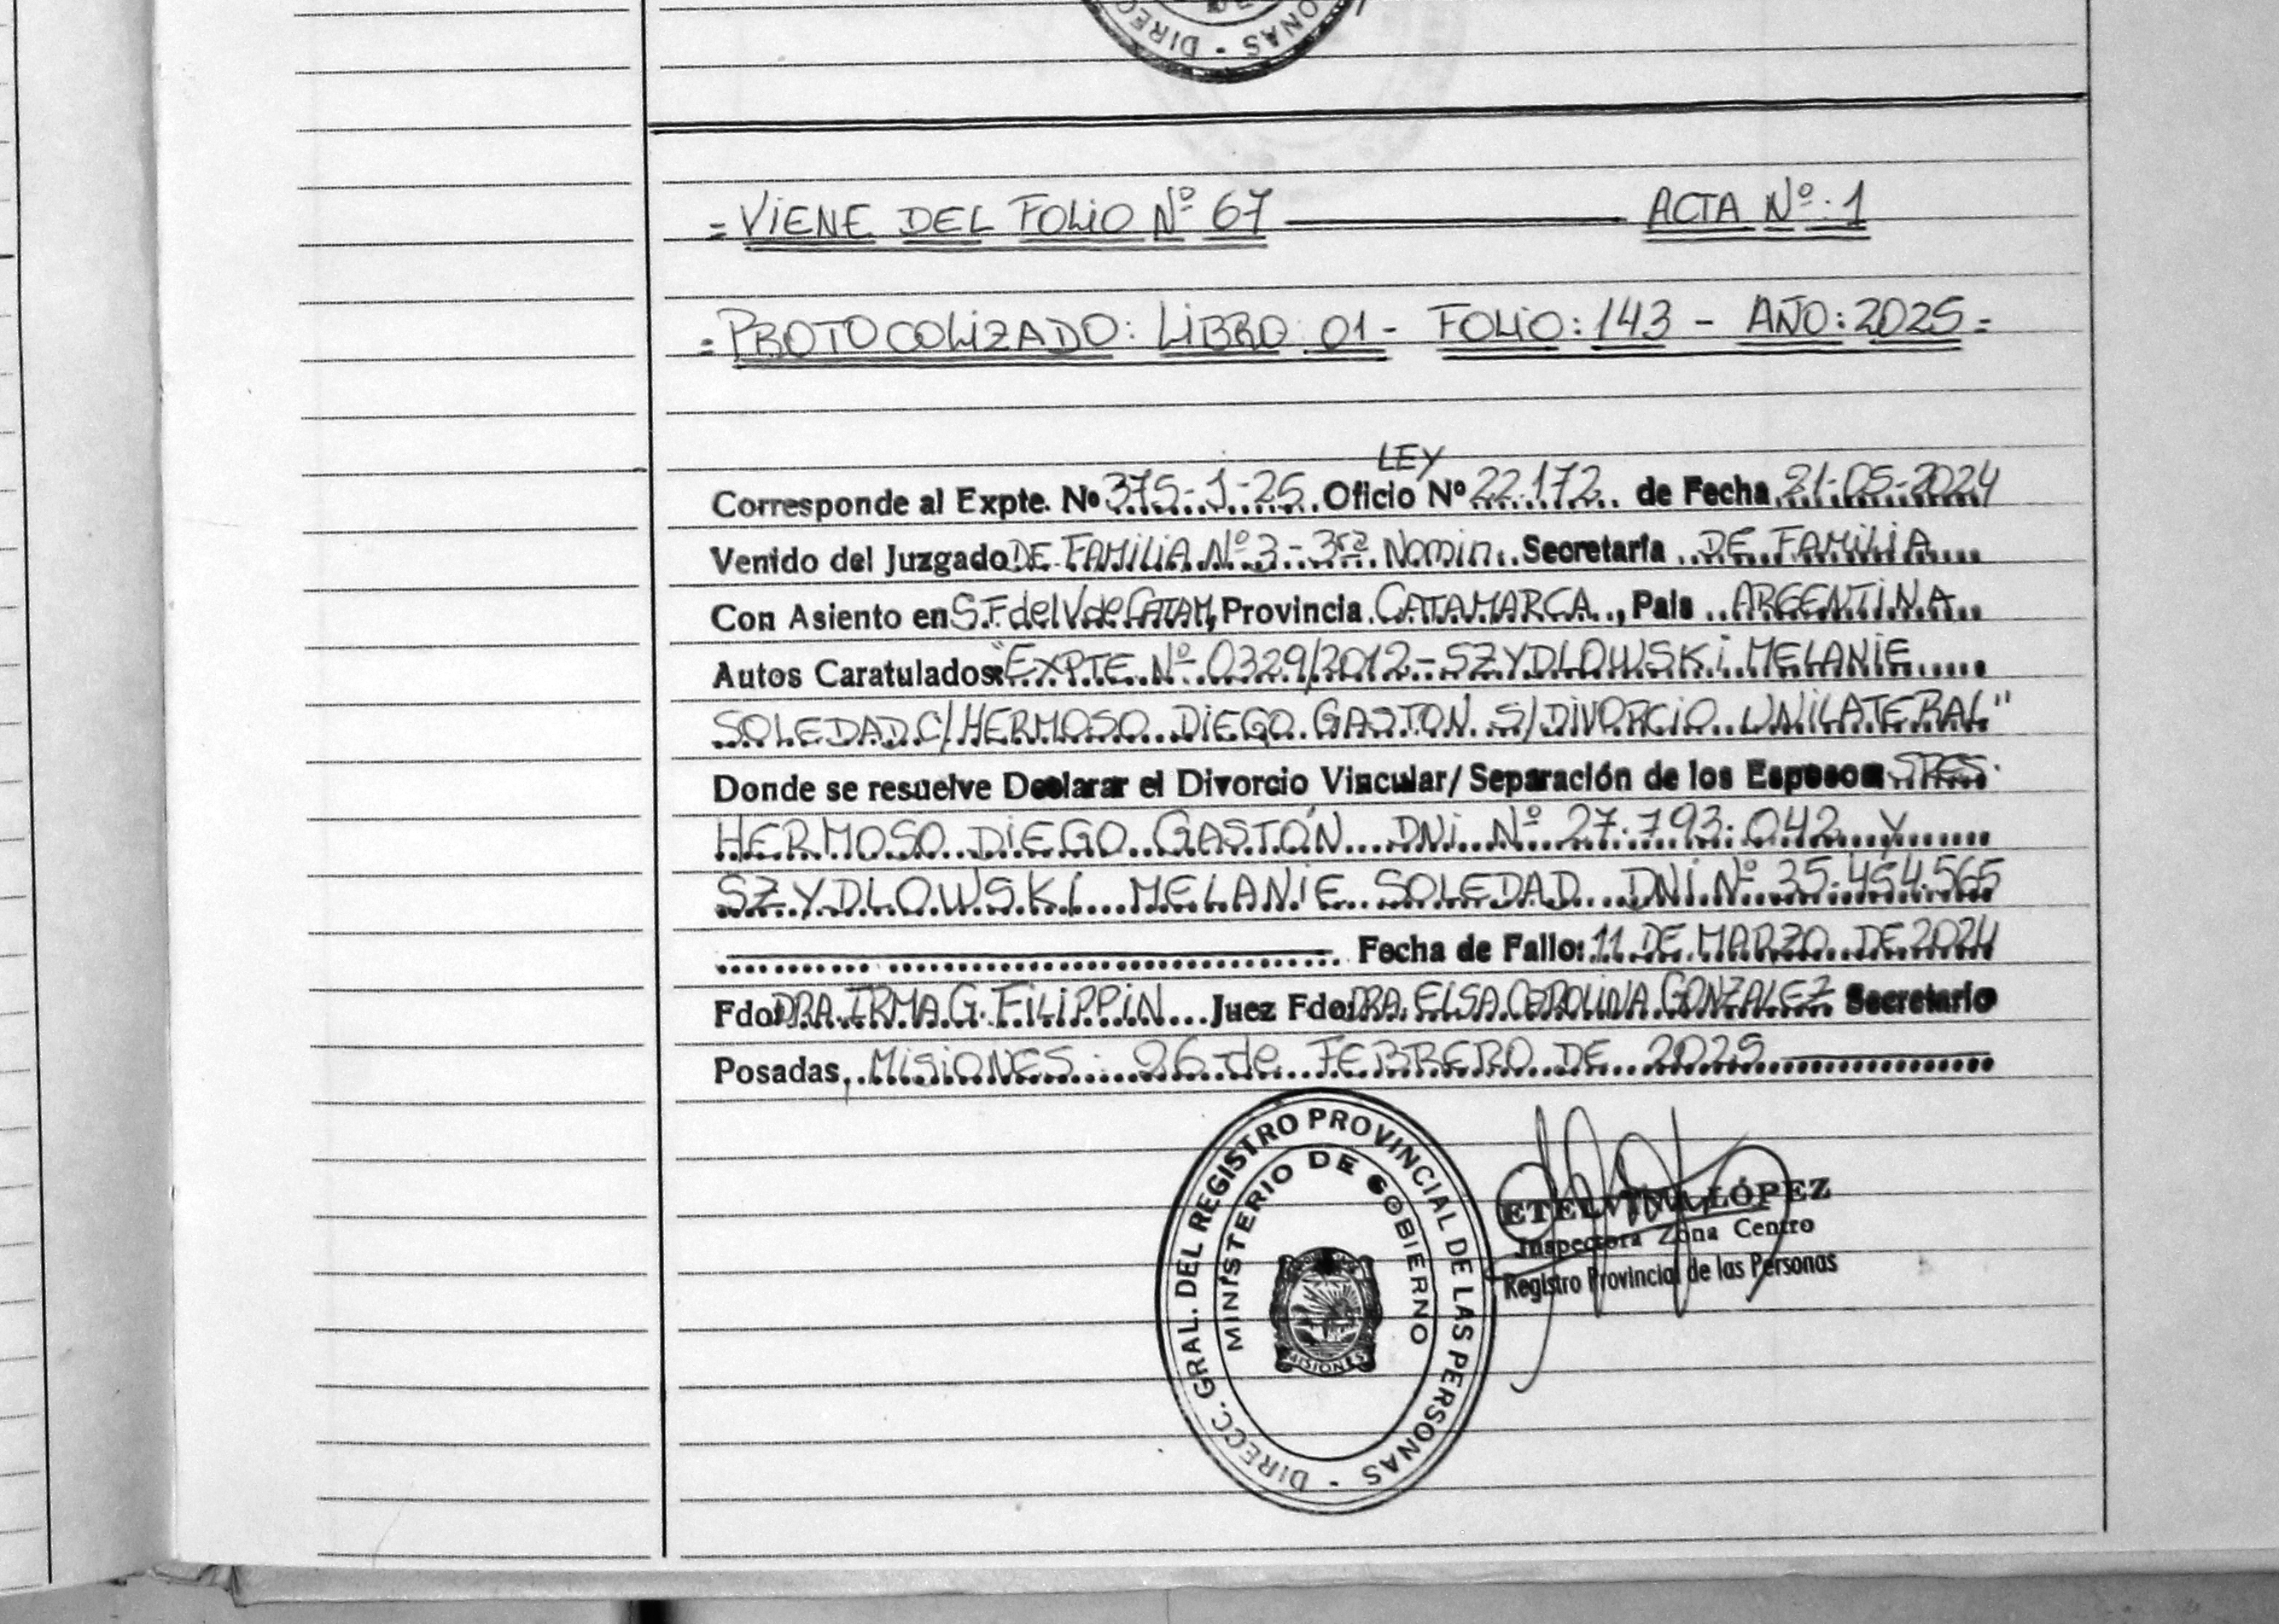 DIRECC
ONAS - DIREC
= VIENE DEL FOLIO Nº 67 ACTA Nº. 1
= PROTOCOLIZADO: LIBRO 01 - FOLIO: 143 - AÑO: 2025 =
LEY
Corresponde al Expte. Nº 375-1-25. Oficio Nº 22.172.. de Fecha 21-05-2024
Venido del Juzgado DE FAMILIA Nº 3 - 3ra Nomin. Secretaría DE FAMILIA
Con Asiento en S.F. del V. de CATAM, Provincia CATAMARCA, País ARGENTINA
Autos Caratulados "EXPTE Nº 0329/2012 - SZYDLOWSKI MELANIE
SOLEDAD C/ HERMOSO DIEGO GASTON S/ DIVORCIO UNILATERAL"
Donde se resuelve Declarar el Divorcio Vincular/ Separación de los Esposos SRES.
HERMOSO DIEGO GASTÓN DNI Nº 27.793.042 y
SZYDLOWSKI MELANIE SOLEDAD DNI Nº 35.454.565
Fecha de Fallo: 11 DE MARZO DE 2024
Fdo: DRA. IRMA G. FILIPPIN Juez Fdo: DRA. ELSA CAROLINA GONZALEZ Secretario
Posadas, MISIONES: 26 de FEBRERO DE 2025
DIRECC. GRAL. DEL REGISTRO PROVINCIAL DE LAS PERSONAS -
MINISTERIO DE GOBIERNO
MISIONES
LÓPEZ
Inspectora Zona Centro
Registro Provincial de las Personas